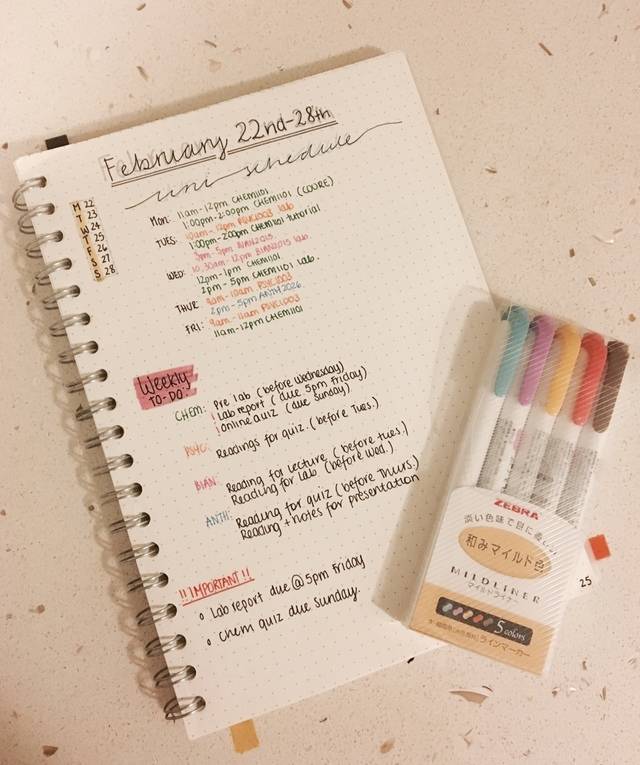 February 22nd-28th
uni schedule
M 22
T 23
W 24
T 25
F 26
S 27
S 28
MON: 11am-12pm CHEM1101
1:00pm-2:00pm CHEM1101 (COURE)
TUES: 10am-12pm PSYC1003 lab
1:00pm-2:00pm CHEM1101 tutorial
3pm-5pm BIAN2015
WED: 10.30am-12pm BIAN2015 lab
12pm-1pm CHEM1101
2pm-5pm CHEM1101 lab.
THUR: 9am-10am PSYC1003
2pm-5pm ANTH2026.
FRI: 9am-11am PSYC1003
11am-12pm CHEM1101
Weekly
TO-DO:
CHEM: Pre lab (before wednesday)
! Lab report (due 5pm Friday)
! online quiz (due sunday)
PSYC: Readings for quiz. (before Tues.)
BIAN: Reading for lecture (before tues.)
Reading for Lab (before Wed.)
ANTH: Reading for quiz (before Thurs.)
Reading + notes for presentation
!! IMPORTANT !!
Lab report due @ 5pm Friday
Chem quiz due Sunday.
ZEBRA
淡い色味で目に
和みマイルド色
MILDLINER
マイルドライナー
5 colors
ラインマーカー
25